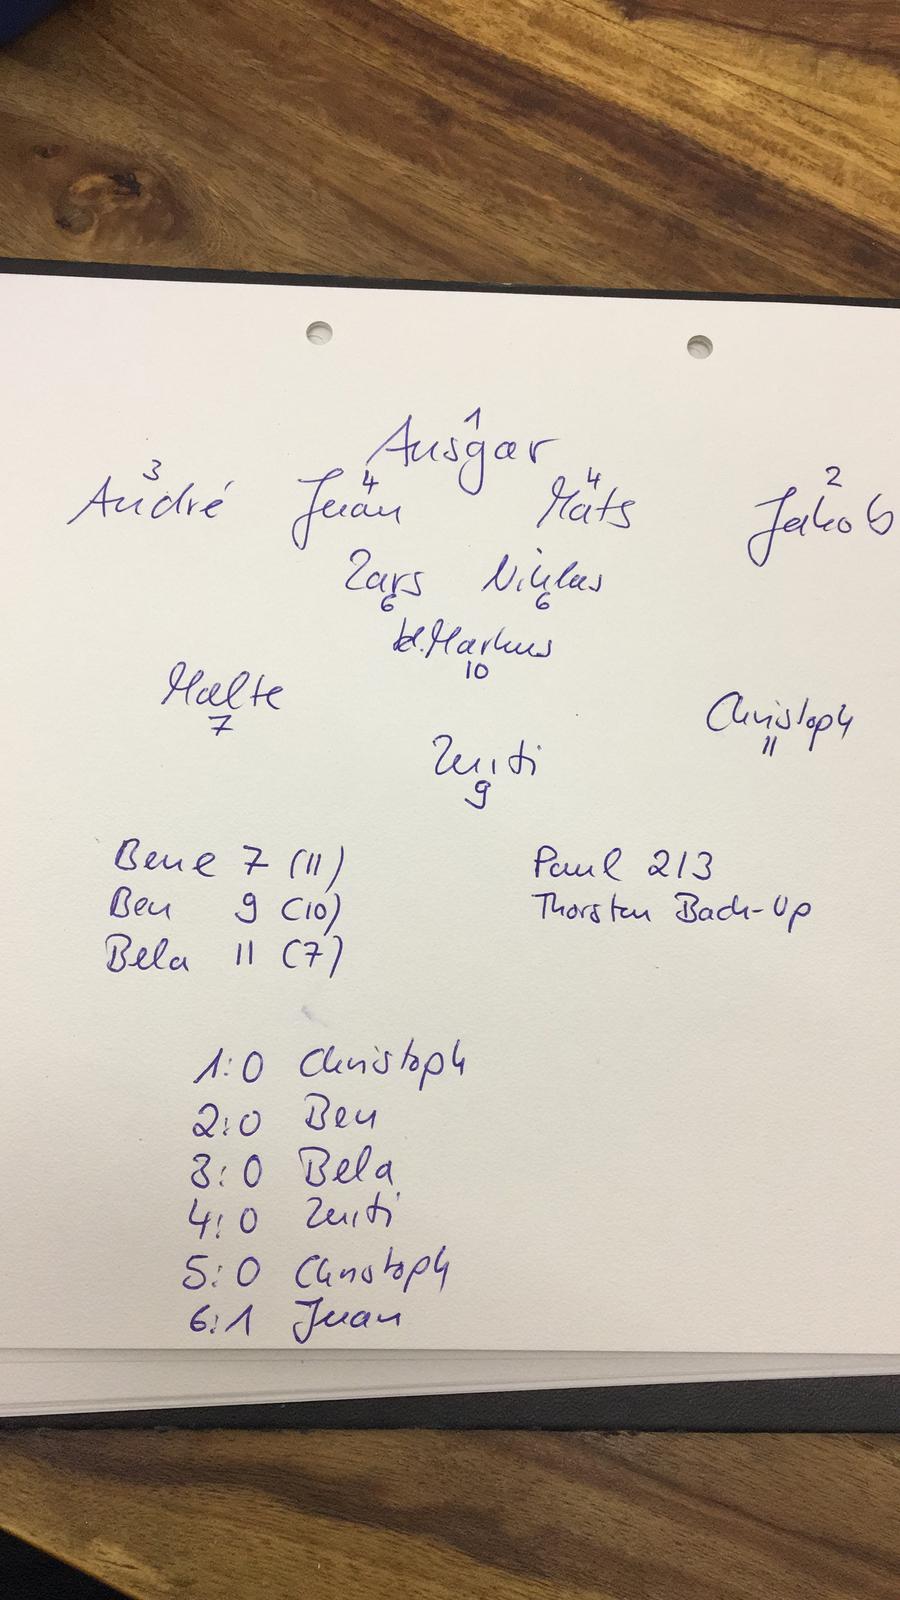 1
Ansgar
3 4 4 2
André Juan Mats Jakob
Lars Niklas
6 6
kl. Markus
10
Malte
7
Christoph
11
9
Bene 7 (11) Paul 2/3
Ben 9 (10) Thorsten Back-Up
Bela 11 (7)
1:0 Christoph
2:0 Ben
3:0 Bela
4:0
5:0 Christoph
6:1 Juan